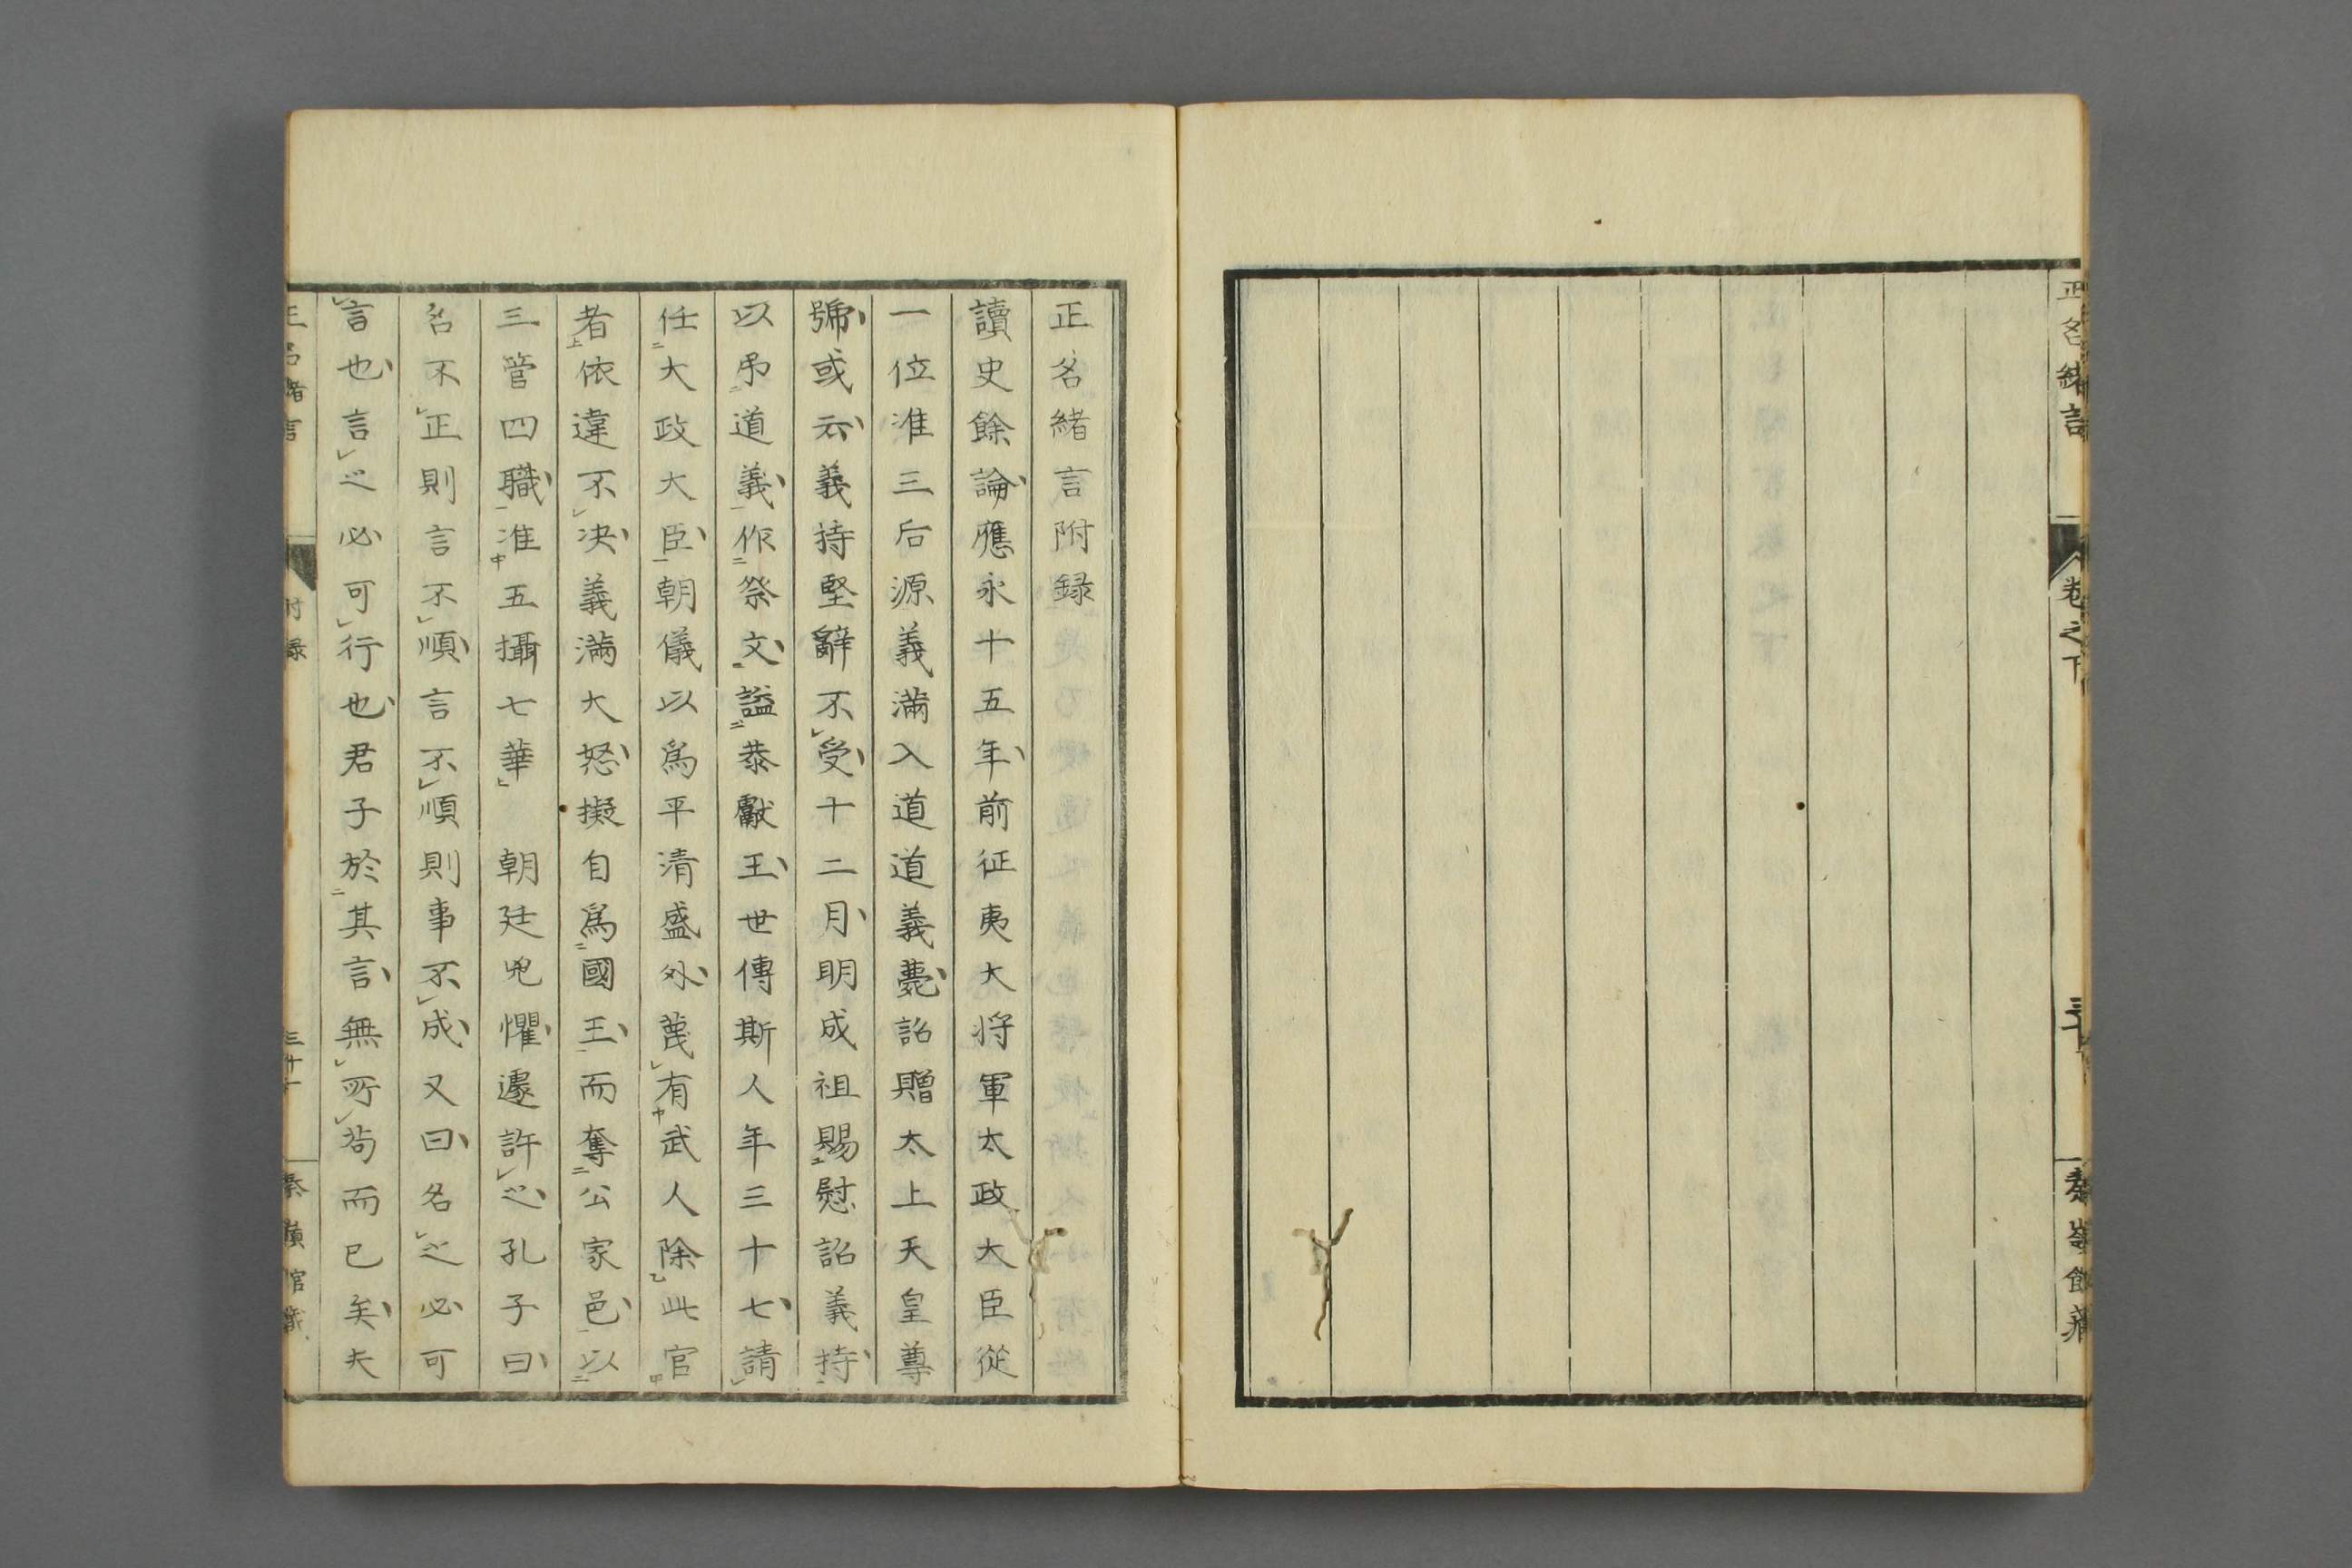 正名緒言
卷之下
正名緒言附録
讀史餘論應永十五年前征夷大將軍太政大臣從
一位准三后源義滿入道道義薨詔贈太上天皇尊
號或云義持堅辭不受十二月明成祖賜慰詔義持
以弔道義作祭文謚恭獻王世傳斯人年三十七請
任大政大臣朝儀以為平清盛外蔑有武人除此官
者依違不決義滿大怒擬自為國王而奪公家邑以
三管四職准五攝七華　朝廷兇懼遽許之孔子曰
名不正則言不順言不順則事不成又曰名之必可
言也言之必可行也君子於其言無所苟而已矣夫
正名緒言
附録